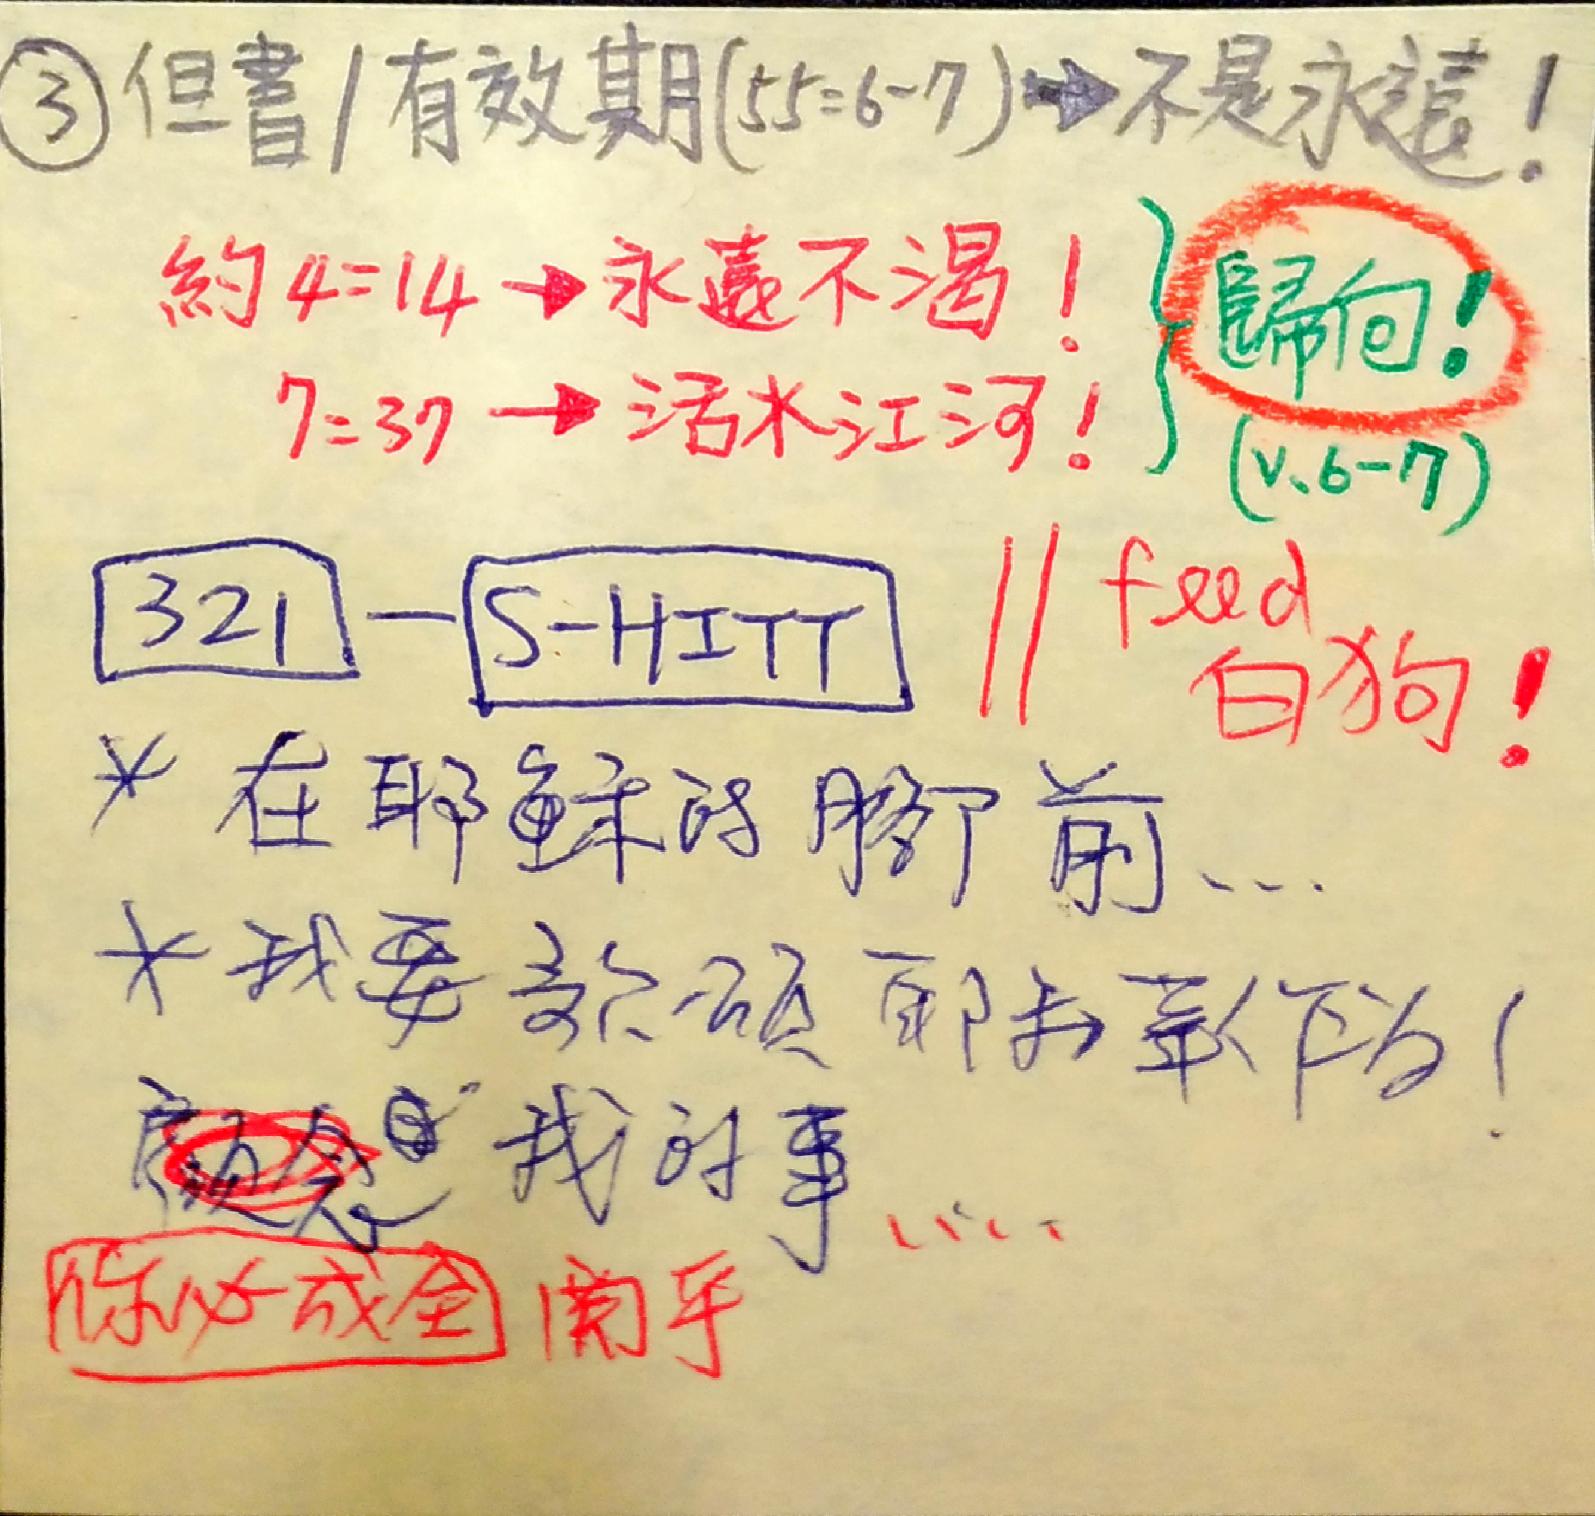 ③但書/有效期(55=6-7)➡不是永遠!
約4=14→永遠不渴!
7=37→活水江河!
歸向!
(v.6-7)
321-S-HITT
feed
白狗!
*在耶穌的腳前...
*我要歌頌耶和華作為!
我的事.....
你必成全關乎